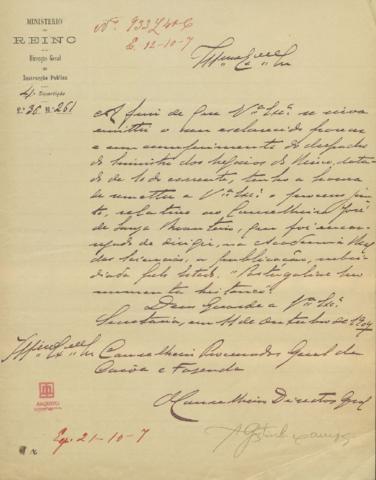 MINISTERIO
DO
REINO
Direcção Geral
de
Instrucção Publica
4ª Repartição
Lº 36 Nº 261
Nº 933 L 40-C
E. 12-10-7
Illmo e Exmo Snr
A fim de que Vª Exª se sirva
emittir o seu esclarecido parecer
e em cumprimento do despacho
do ministro dos negocios do Reino, data-
do de 10 do corrente, tenho a honra
de remetter a Vª Exª o processo jun-
to, relativo ao Conselheiro José
de Souza Monteiro, que foi encar-
regado de dirigir, na Academia Real
das Sciencias, a publicação, subsi-
diada pelo Estado, "Portugaliae Mo-
numenta historica".
Deus Guarde a Vª Exª
Secretaria, em 11 de outubro de 1907
Illmo e Exmo Snr Conselheiro Procurador Geral da
Corôa e Fazenda
O Conselheiro Director Geral
ARQUIVO
Exp. 21-10-7